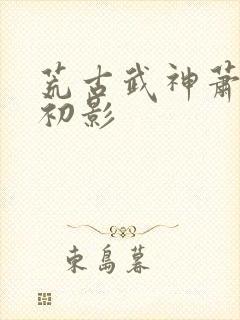 荒古武神萧
初影
東島暮